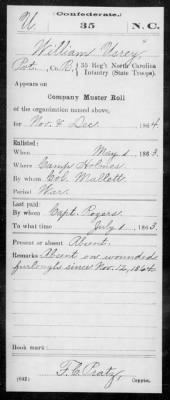 (Confederate.)
U 35 N.C.
William Usrey
Pvt., Co. B, 35 Reg't North Carolina
Infantry (State Troops).
Appears on
Company Muster Roll
of the organization named above,
for Nov. & Dec., 1864.
Enlisted:
When May 1, 1863.
Where Camp Holmes
By whom Col. Mallett
Period War.
Last paid:
By whom Capt. Rogers.
To what time July 1, 1863.
Present or absent Absent.
Remarks: Absent on wounded
furlough since Nov. 12, 1864.
Book mark:
(642) F. C. Pratz,
Copyist.